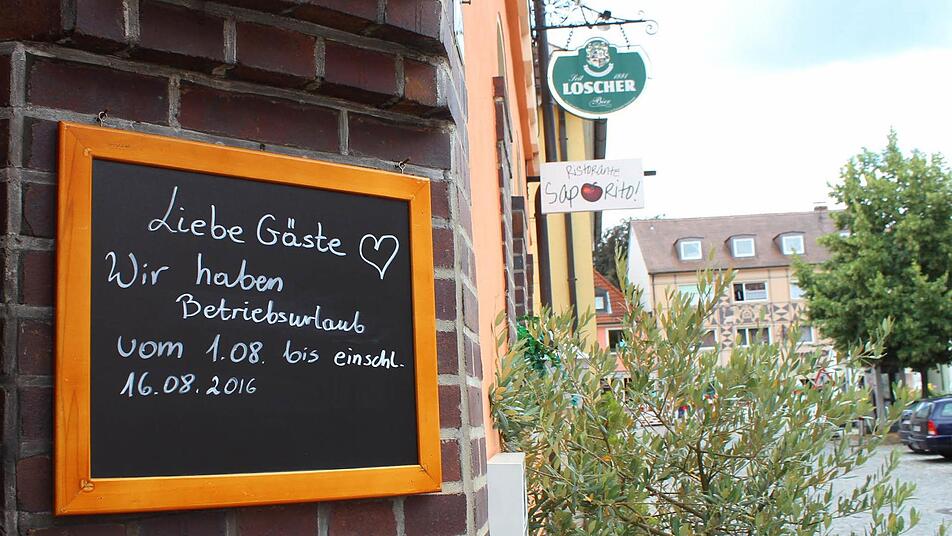 Liebe Gäste
Wir haben
Betriebsurlaub
vom 1.08. bis einschl.
16.08.2016
Seit 1881
LOSCHER
Bier
Ristorante
Saporito!